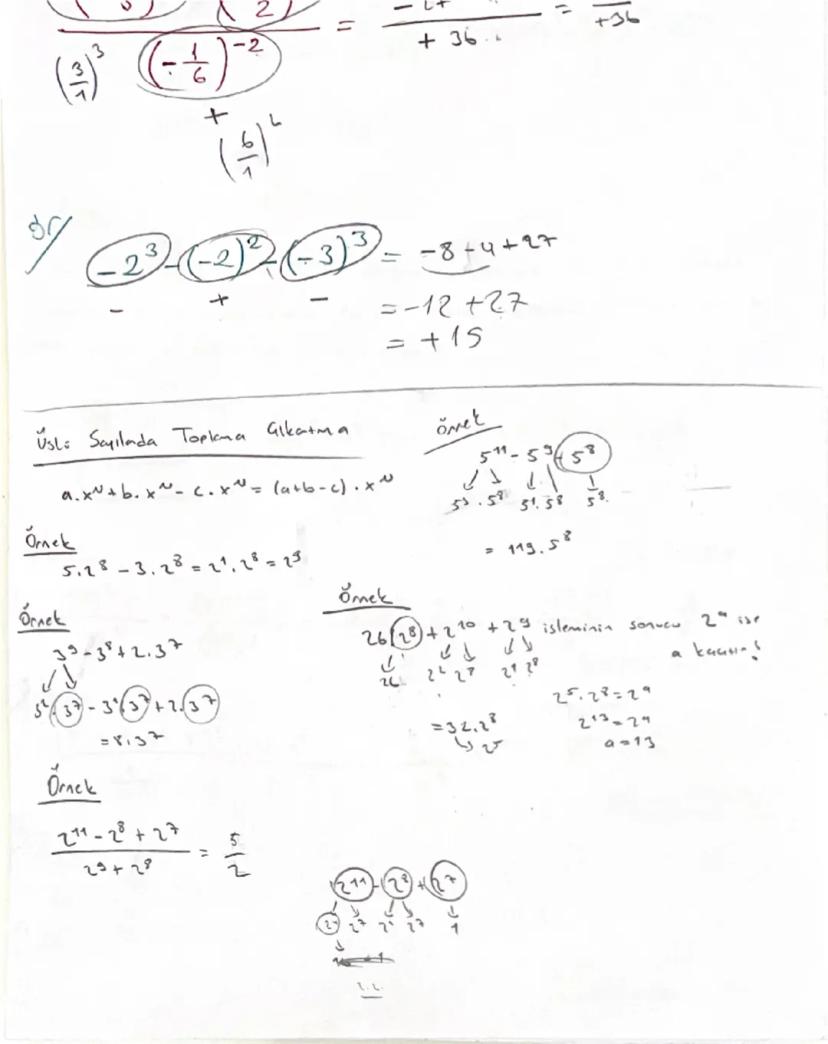 (3/1)³ (-1/6)⁻² = + 36 = +36
+
(6/1)
ör/ -2³-(-2)²-(-3)³ = -8-4+27
- + -
= -12 +27
= +15
Üslü Sayılada Toplama Çıkatma
a.xᴺ+b.xᴺ- c.xᴺ= (a+b-c).xᴺ
Örnek
5.2⁸ - 3.2⁸ = 2¹.2⁸ = 2⁹
Örnek
3⁹-3⁸+2.3⁷
3² 3⁷ - 3¹ 3⁷ + 2.3⁷
= 8.3⁷
Örnek
2¹¹ - 2⁸ + 2⁷ / 2⁹ + 2⁸ = 5/2
Örnek
5¹¹ - 5⁹ + 5⁸
5³.5⁸ 5¹.5⁸ 5⁸
= 119.5⁸
Örnek
26 2⁸ + 2¹⁰ + 2⁹ isleminin sonucu 2ᵃ ise
a kaçtır?
26 2² 2⁸ 2¹ 2⁸
= 32.2⁸
2⁵
2⁵.2⁸=2ᵃ
2¹³=2ᵃ
a=13
2¹¹ - 2⁸ + 2⁷
2⁴ 2⁷ 2¹ 2⁷ 1